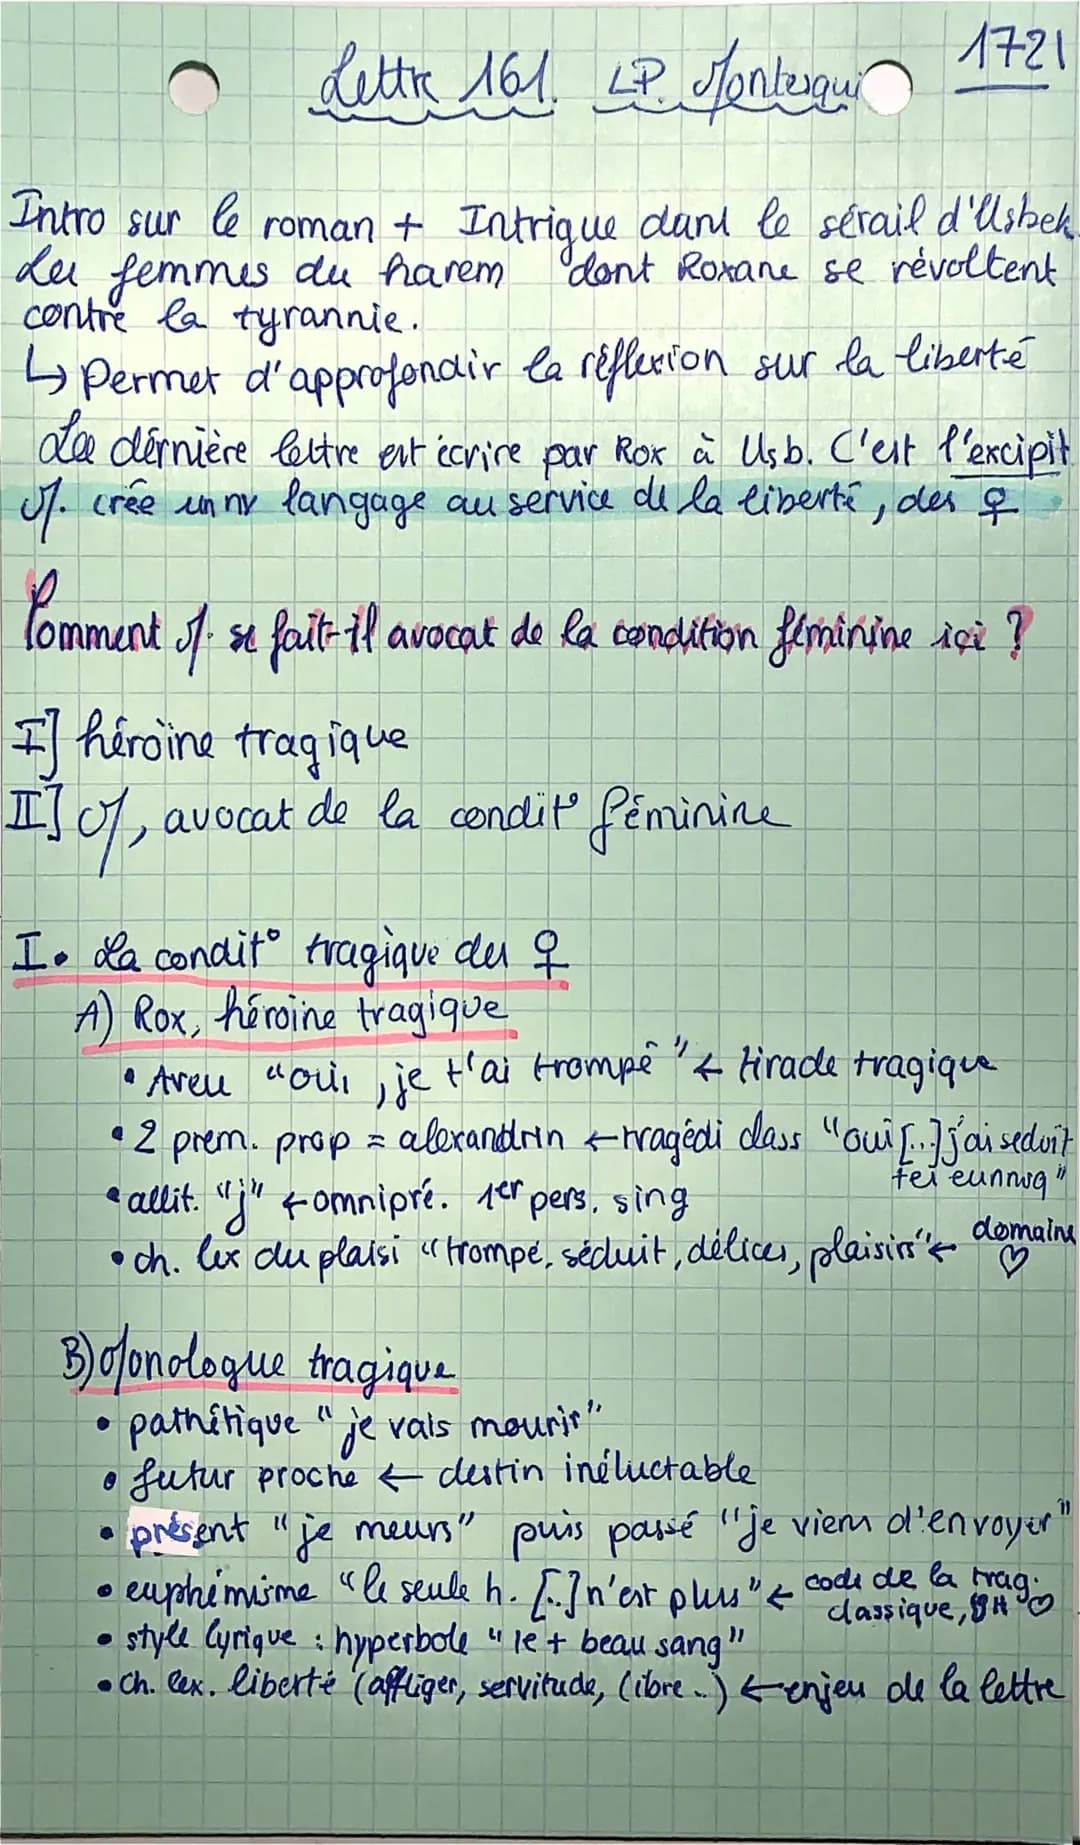 Lettre 161. LP. Montesqui
1721
Intro sur le roman + Intrigue dans le sérail d'Usbek.
Les femmes du harem dont Roxane se révoltent
contre la tyrannie.
↳ Permet d'approfondir la réflexion sur la liberté
La dérnière lettre est écrire par Rox à Usb. C'est l'excipit
M. crée un nv langage au service de la liberté, des ♀
Comment M. se fait-il avocat de la condition féminine ici ?
I] héroïne tragique
II] M, avocat de la condit° féminine
I. La condit° tragique des ♀
A) Rox, héroïne tragique
• Aveu "oui, je t'ai trompé" ← tirade tragique
• 2 prem. prop = alexandrin ← tragédi class "oui [...] j'ai seduit
tes eunnuq"
• allit. "j" ← omnipré. 1er pers. sing
• ch. lex du plaisi "trompé, séduit, délices, plaisirs" ← domaine
♡
B) Monologue tragique
• pathétique "je vais mourir"
• futur proche ← destin inéluctable
• présent "je meurs" puis passé "je viens d'envoyer"
• euphémisme "le seule h. [..] n'est plus" ← code de la trag.
classique, ♡
• style lyrique : hyperbole "le + beau sang"
• Ch. lex. liberté (affliger, servitude, libre ..) ← enjeu de la lettre